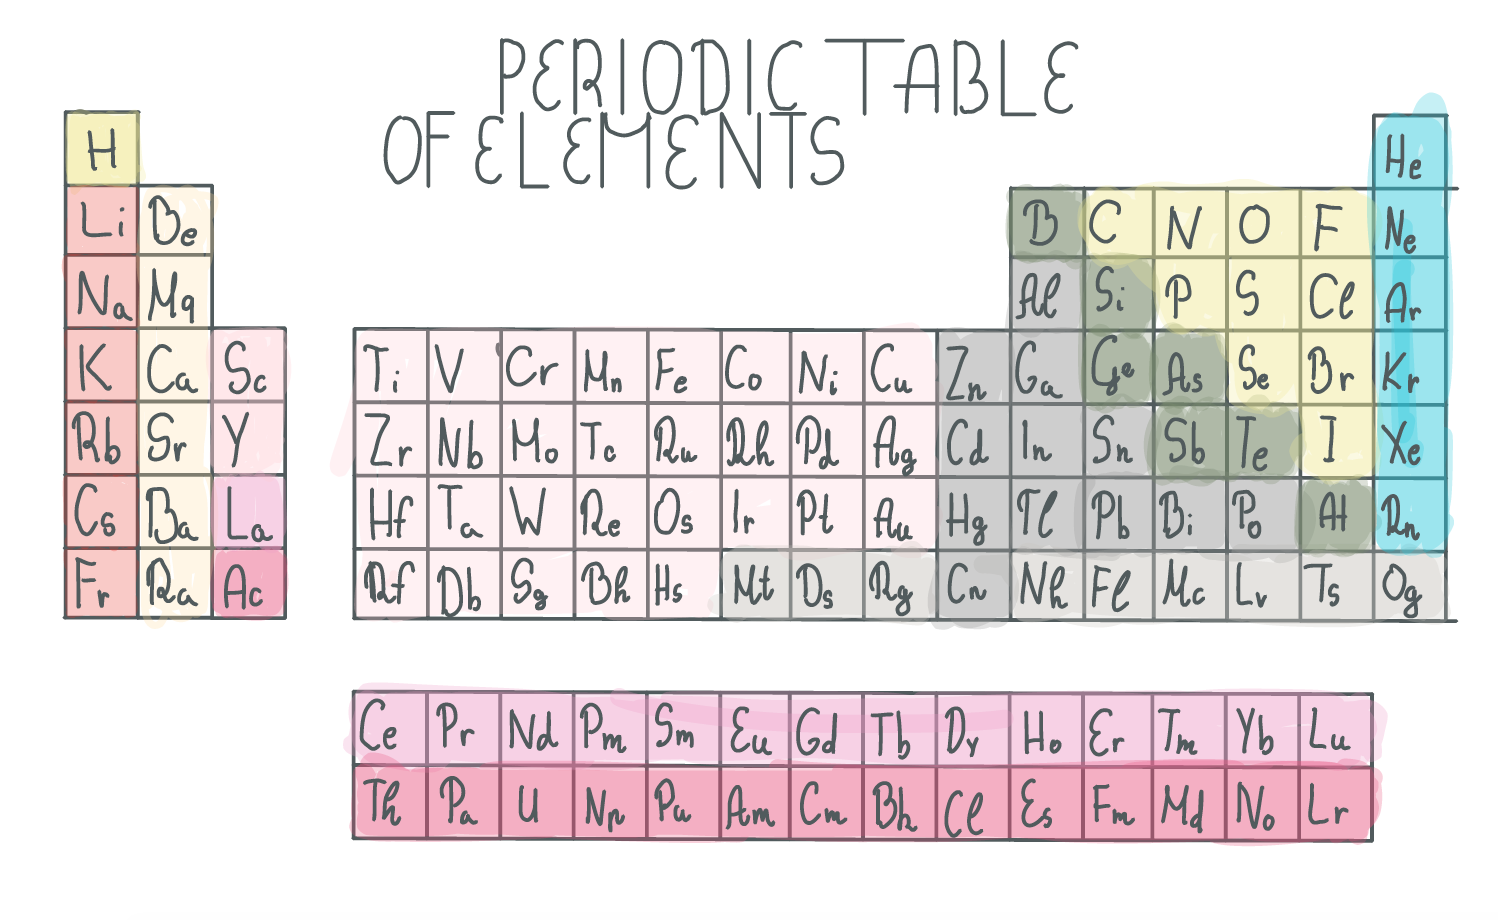 PERIODIC TABLE
OF ELEMENTS
H He
Li Be B C N O F Ne
Na Mq Al Si P S Cl Ar
K Ca Sc Ti V Cr Mn Fe Co Ni Cu Zn Ga Ge As Se Br Kr
Rb Sr Y Zr Nb Mo Tc Ru Rh Pd Ag Cd In Sn Sb Te I Xe
Cs Ba La Hf Ta W Re Os Ir Pt Au Hg Tl Pb Bi Po At Rn
Fr Ra Ac Rf Db Sg Bh Hs Mt Ds Rg Cn Nh Fl Mc Lv Ts Og
Ce Pr Nd Pm Sm Eu Gd Tb Dy Ho Er Tm Yb Lu
Th Pa U Np Pu Am Cm Bk Cl Es Fm Md No Lr